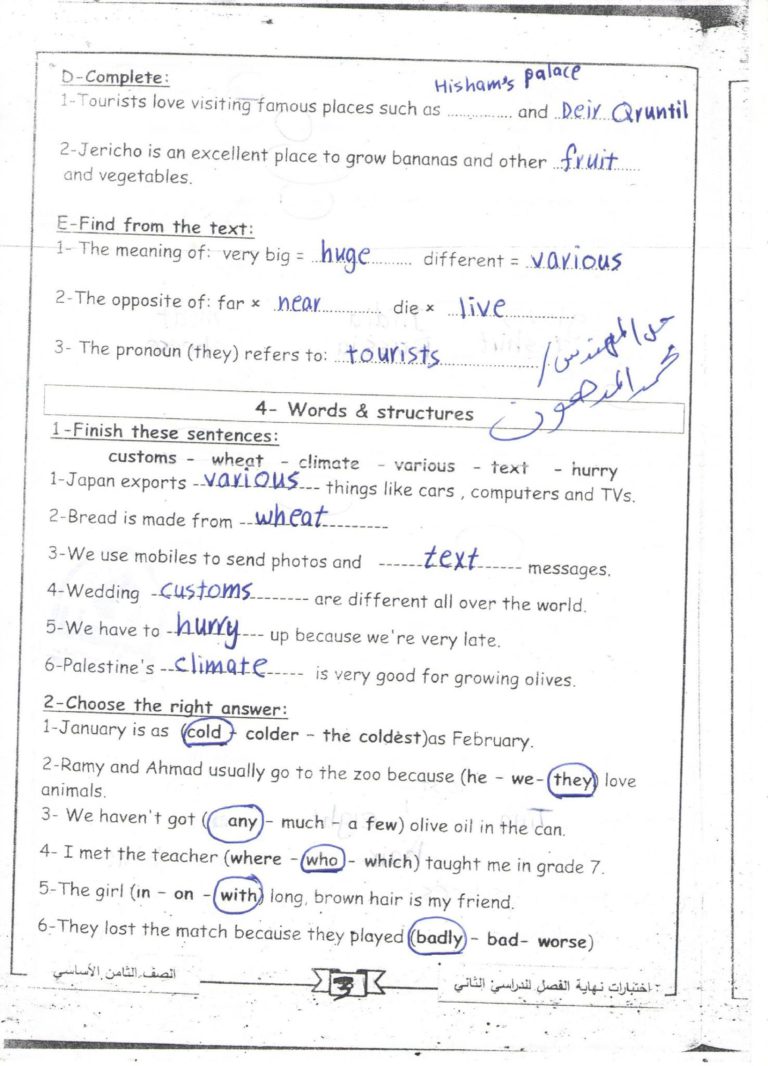 D-Complete:
Hisham's palace
1-Tourists love visiting famous places such as .............. and ..Deir Qruntil
2-Jericho is an excellent place to grow bananas and other ..fruit......
and vegetables.
E-Find from the text:
1- The meaning of: very big = ...huge......... different = ..various
2-The opposite of: far × ..near............. die × ..live..............
3- The pronoun (they) refers to: ..tourists....................
حل المهندس/
محمد المدهون
4- Words & structures
1-Finish these sentences:
customs - wheat - climate - various - text - hurry
1-Japan exports --various--- things like cars , computers and TVs.
2-Bread is made from --wheat---------
3-We use mobiles to send photos and ------text------ messages.
4-Wedding -customs-------- are different all over the world.
5-We have to -hurry--- up because we're very late.
6-Palestine's --climate----- is very good for growing olives.
2-Choose the right answer:
1-January is as (cold - colder - the coldest)as February.
2-Ramy and Ahmad usually go to the zoo because (he - we- they) love
animals.
3- We haven't got ( any - much - a few) olive oil in the can.
4- I met the teacher (where - who - which) taught me in grade 7.
5-The girl (in - on - with) long, brown hair is my friend.
6-They lost the match because they played (badly - bad- worse)
اختبارات نهاية الفصل الدراسي الثاني 3 الصف الثامن الأساسي